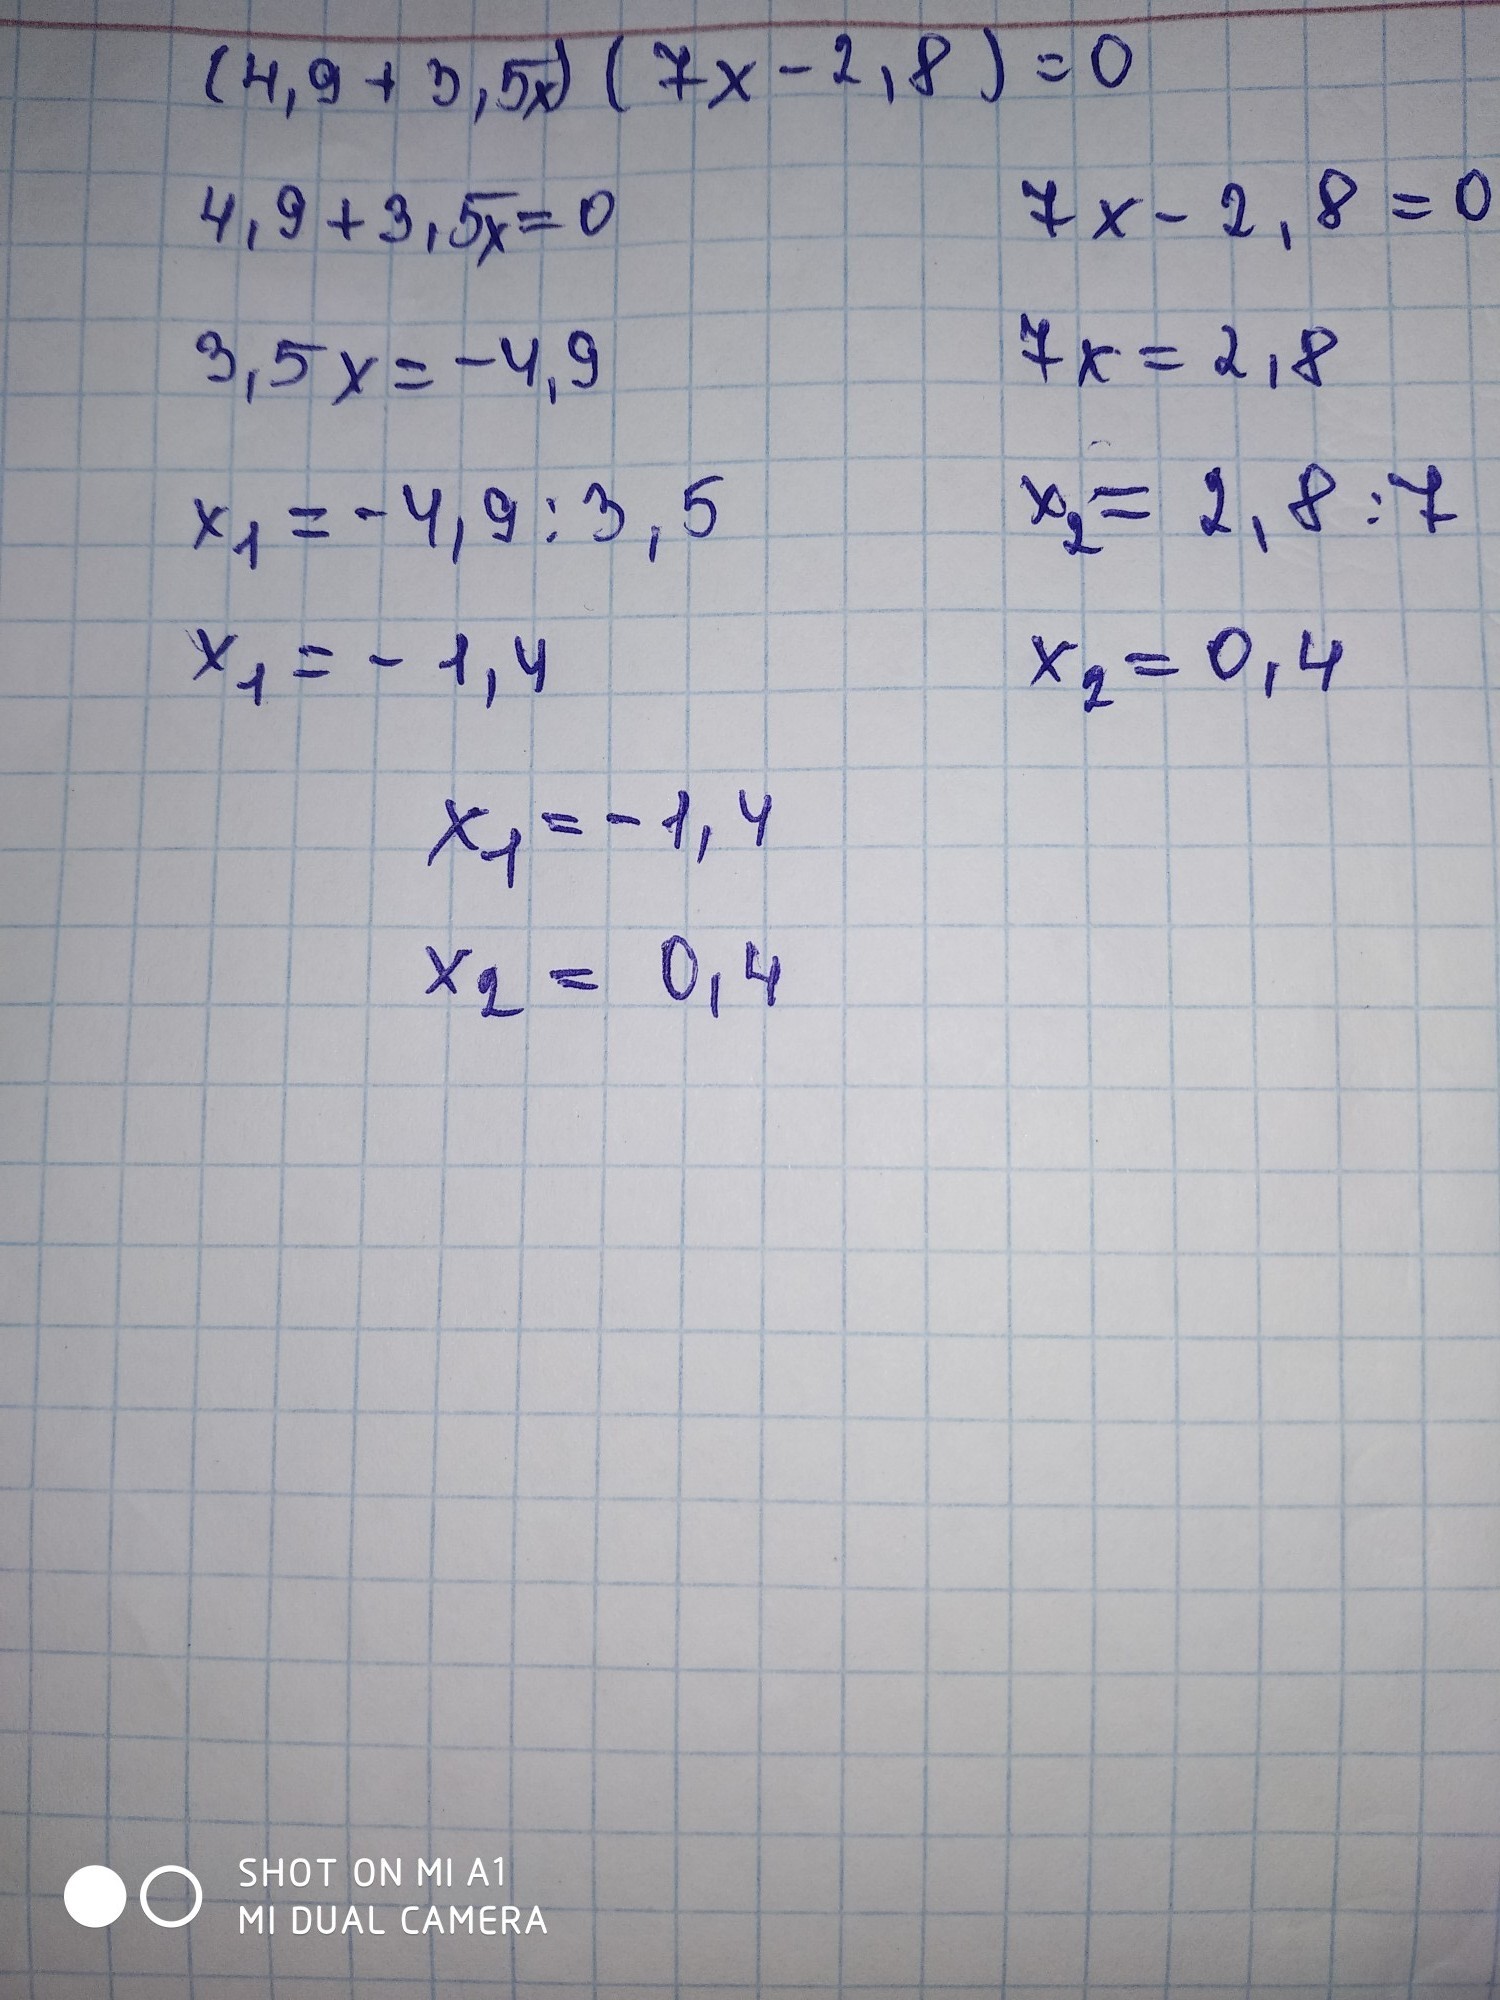 (4,9+3,5x)(7x-2,8)=0
4,9+3,5x=0
3,5x=-4,9
x₁=-4,9:3,5
x₁=-1,4
7x-2,8=0
7x=2,8
x₂=2,8:7
x₂=0,4
x₁=-1,4
x₂=0,4
SHOT ON MI A1
MI DUAL CAMERA